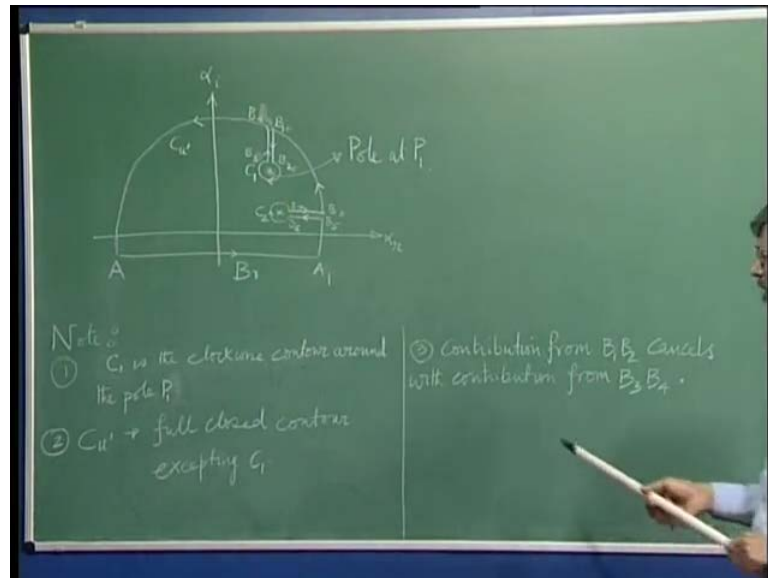 αi
B4 B1
Cu'
B3 B2
C1
Pole at P1
C2
αr
A Br A1
Note:
① C1 is the clockwise contour around
the pole P1
② Cu' → full closed contour
excepting C1
③ Contribution from B1B2 cancels
with contribution from B3B4.